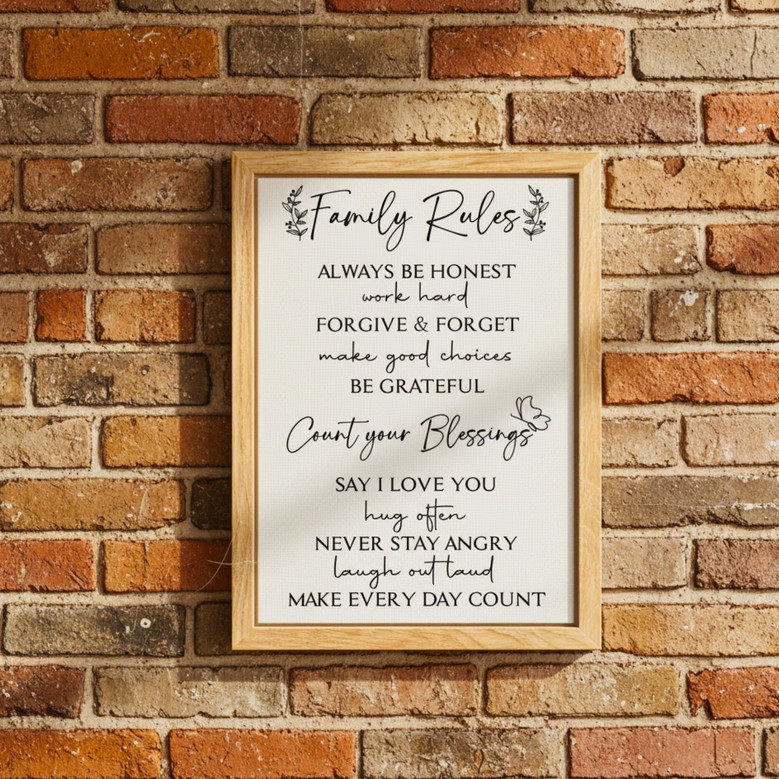 Family Rules
ALWAYS BE HONEST
work hard
FORGIVE & FORGET
make good choices
BE GRATEFUL
Count your Blessings
SAY I LOVE YOU
hug often
NEVER STAY ANGRY
laugh out laud
MAKE EVERY DAY COUNT